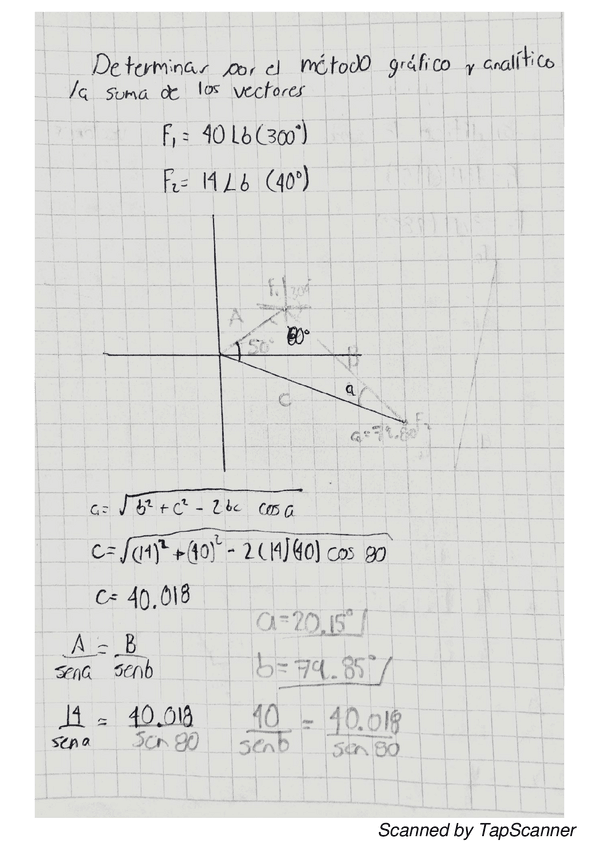 Determinar por el método gráfico y analítico
la suma de los vectores
F₁ = 40 Lb (300°)
F₂ = 14 Lb (40°)
F₁
A
50°
80°
B
a
C
F₂
a = √b² + c² - 2bc cos a
C = √(14)² + (40)² - 2(14)(40) cos 80
C = 40.018
a = 20.15°
A/sena = B/senb
b = 79.85°
14/sena = 40.018/sen 80
40/senb = 40.018/sen 80
Scanned by TapScanner